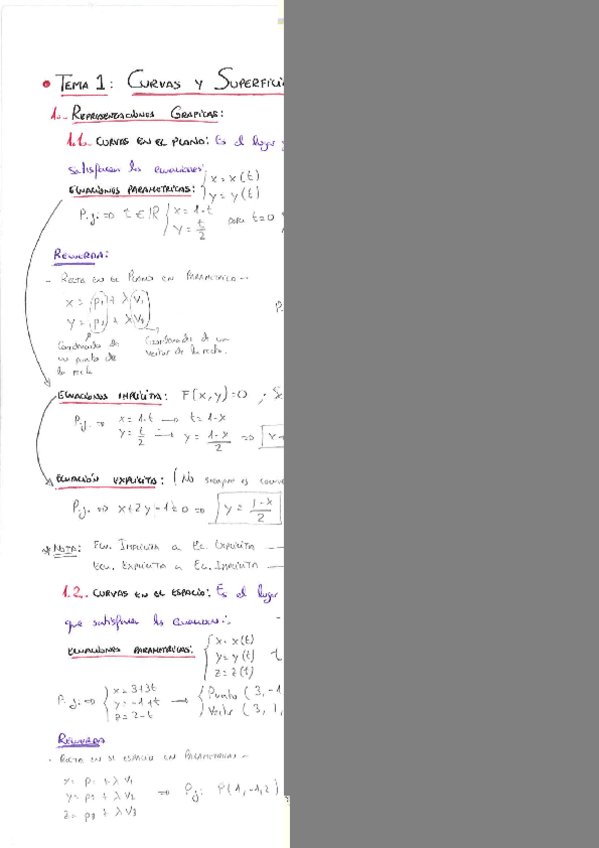 • TEMA 1: CURVAS Y SUPERFICI
1.- REPRESENTACIONES GRAFICAS:
1.1. CURVAS EN EL PLANO: Es el lugar
satisfacen las ecuaciones:
ECUACIONES PARAMETRICAS: { x = x(t)
y = y(t)
P.j. => t ∈ ℝ { x = 1-t
y = t/2 para t=0
RECUERDA:
- RECTA EN EL PLANO EN PARAMETRICO -
x = p₁ + λ v₁
y = p₂ + λ v₂
P.
Coordenada de un punto de la recta
Coordenada de un vector de la recta.
ECUACIONES IMPLICITA: F(x,y)=0 ;
P.j. => x = 1-t -> t = 1-x
y = t/2 -> y = (1-x)/2 => x+
ECUACIÓN EXPLICITA: (No siempre es
P.j. => x+2y-1=0 => y = (1-x)/2
* NOTA: Ecu. IMPLICITA a Ec. EXPLICITA
Ecu. EXPLICITA a Ec. IMPLICITA
1.2. CURVAS EN EL ESPACIO: Es el lugar
que satisfacen las ecuaciones:
ECUACIONES PARAMETRICAS: { x = x(t)
y = y(t) t
z = z(t)
P.j. => { x = 3+3t
y = -1+t
z = 2-t
-> { Punto (3, -1
Vector (3, 1,
RECUERDA
- RECTA EN EL ESPACIO EN PARAMETRICAS -
x = p₁ + λ v₁
y = p₂ + λ v₂ => P.j: P(1,-1,2)
z = p₃ + λ v₃